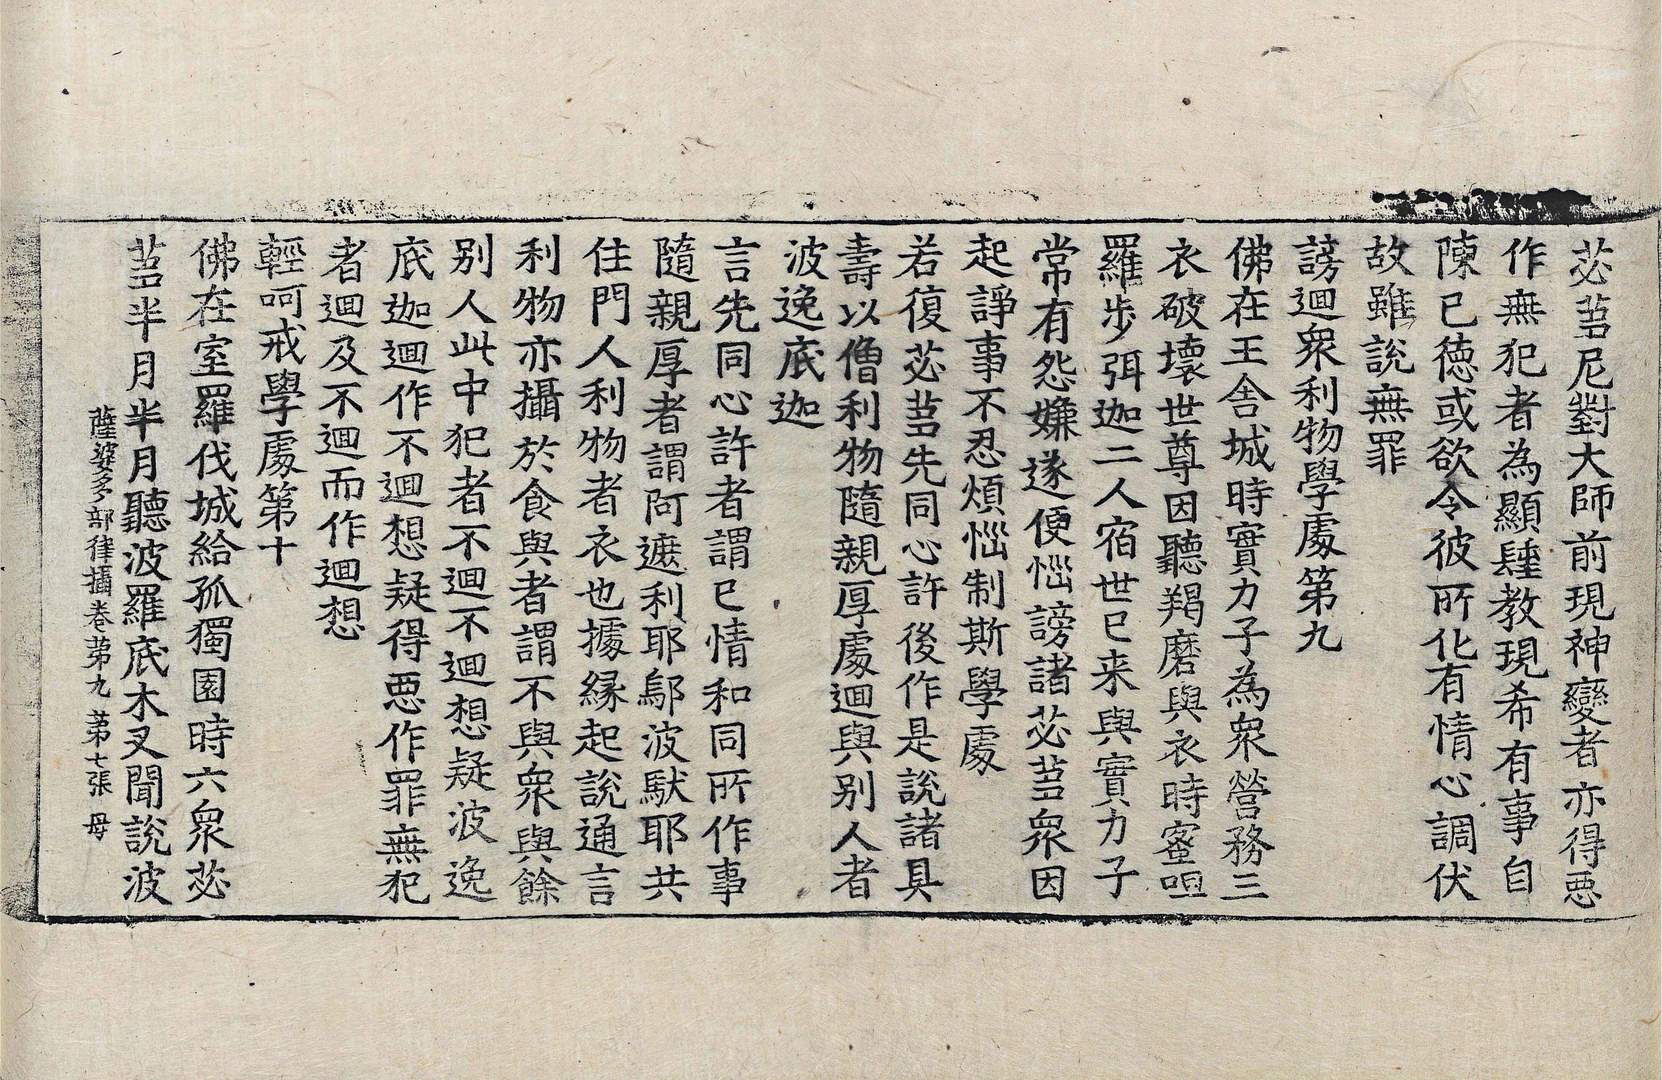 苾芻尼對大師前現神變者亦得惡
作無犯者為顯踵教現希有事自
陳已德或欲令彼所化有情心調伏
故雖說無罪
謗迴衆利物學處第九
佛在王舍城時實力子為衆營務三
衣破壞世尊因聽羯磨與衣時蜜呾
羅步弭迦二人宿世已来與實力子
常有怨嫌遂便惱謗諸苾芻衆因
起諍事不忍煩惱制斯學處
若復苾芻先同心許後作是說諸具
壽以僧利物隨親厚處迴與別人者
波逸底迦
言先同心許者謂已情和同所作事
隨親厚者謂阿遮利耶鄔波馱耶共
住門人利物者衣也據緣起說通言
利物亦攝於食與者謂不與衆與餘
別人此中犯者不迴不迴想疑波逸
底迦迴作不迴想疑得惡作罪無犯
者迴及不迴而作迴想
輕呵戒學處第十
佛在室羅伐城給孤獨園時六衆苾
芻半月半月聽波羅底木叉聞說波
薩婆多部律攝卷第九 第七張 母